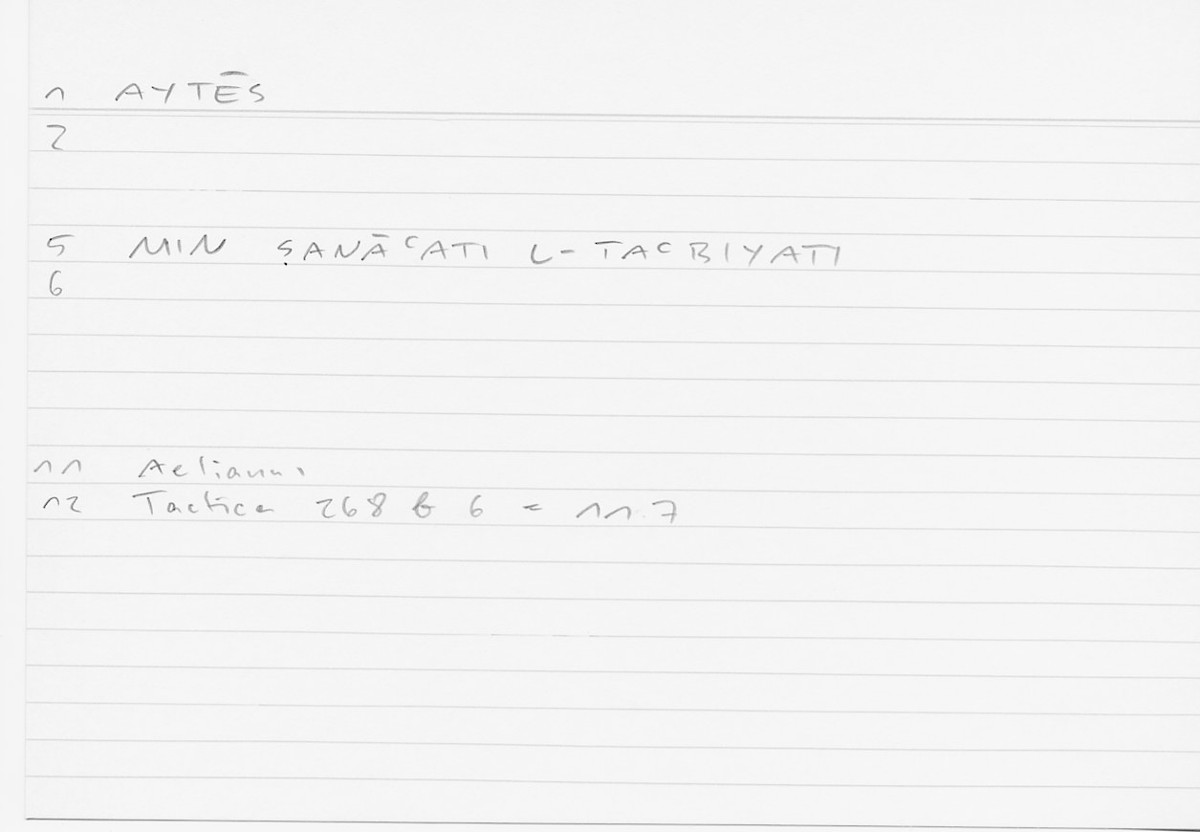 1 AYTĒS
2
5 MIN ṢANĀʿATI L-TAʿBIYATI
6
11 Aelianus
12 Tactica 268 b 6 = 11.7